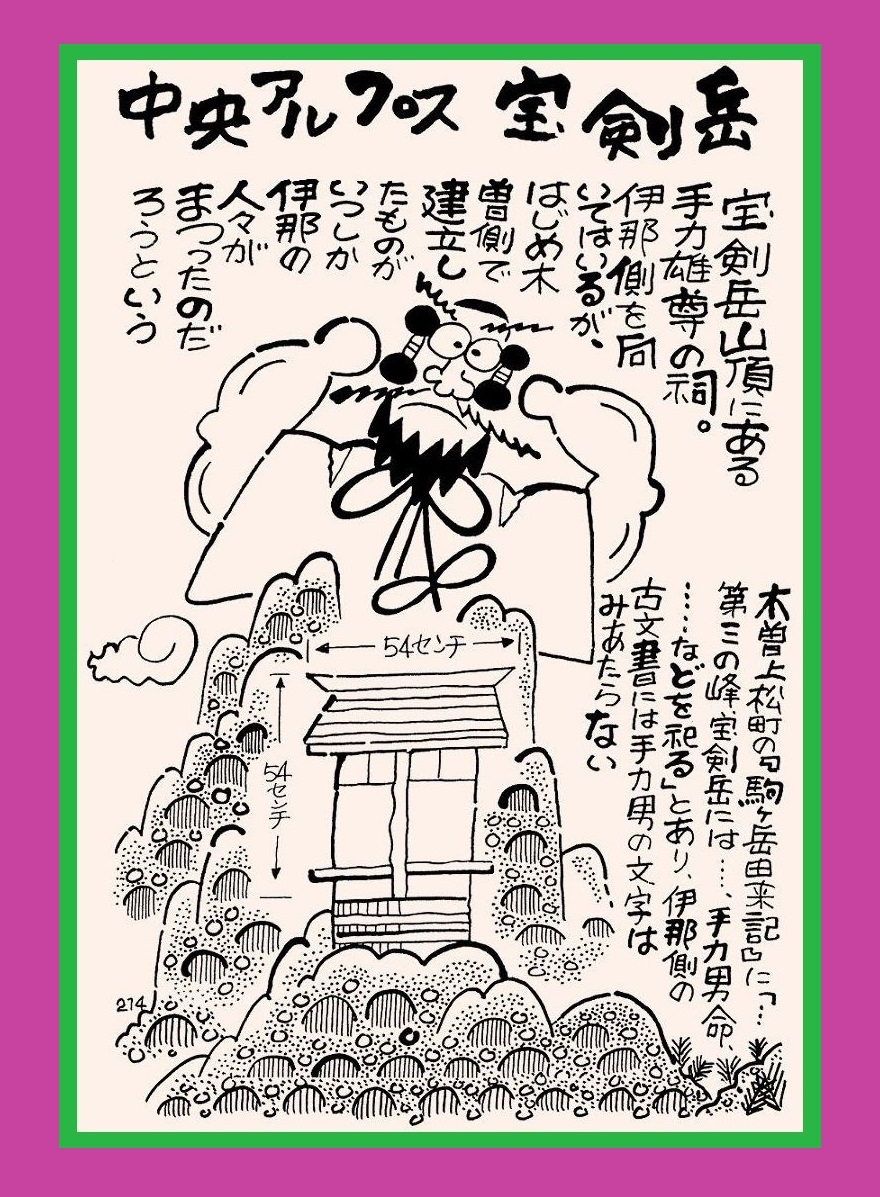 中央アルプス 宝剣岳
宝剣岳山頂にある
手力雄尊の祠。
伊那側を向
いてはいるが、
はじめ木
曽側で
建立し
たものが
いつしか
伊那の
人々が
まつったのだ
ろうという
木曽上松町の『駒ヶ岳由来記』に「…
第三の峰宝剣岳には…、手力男命、
……などを祀る」とあり、伊那側の
古文書には手力男の文字は
みあたらない
54センチ
54センチ
214